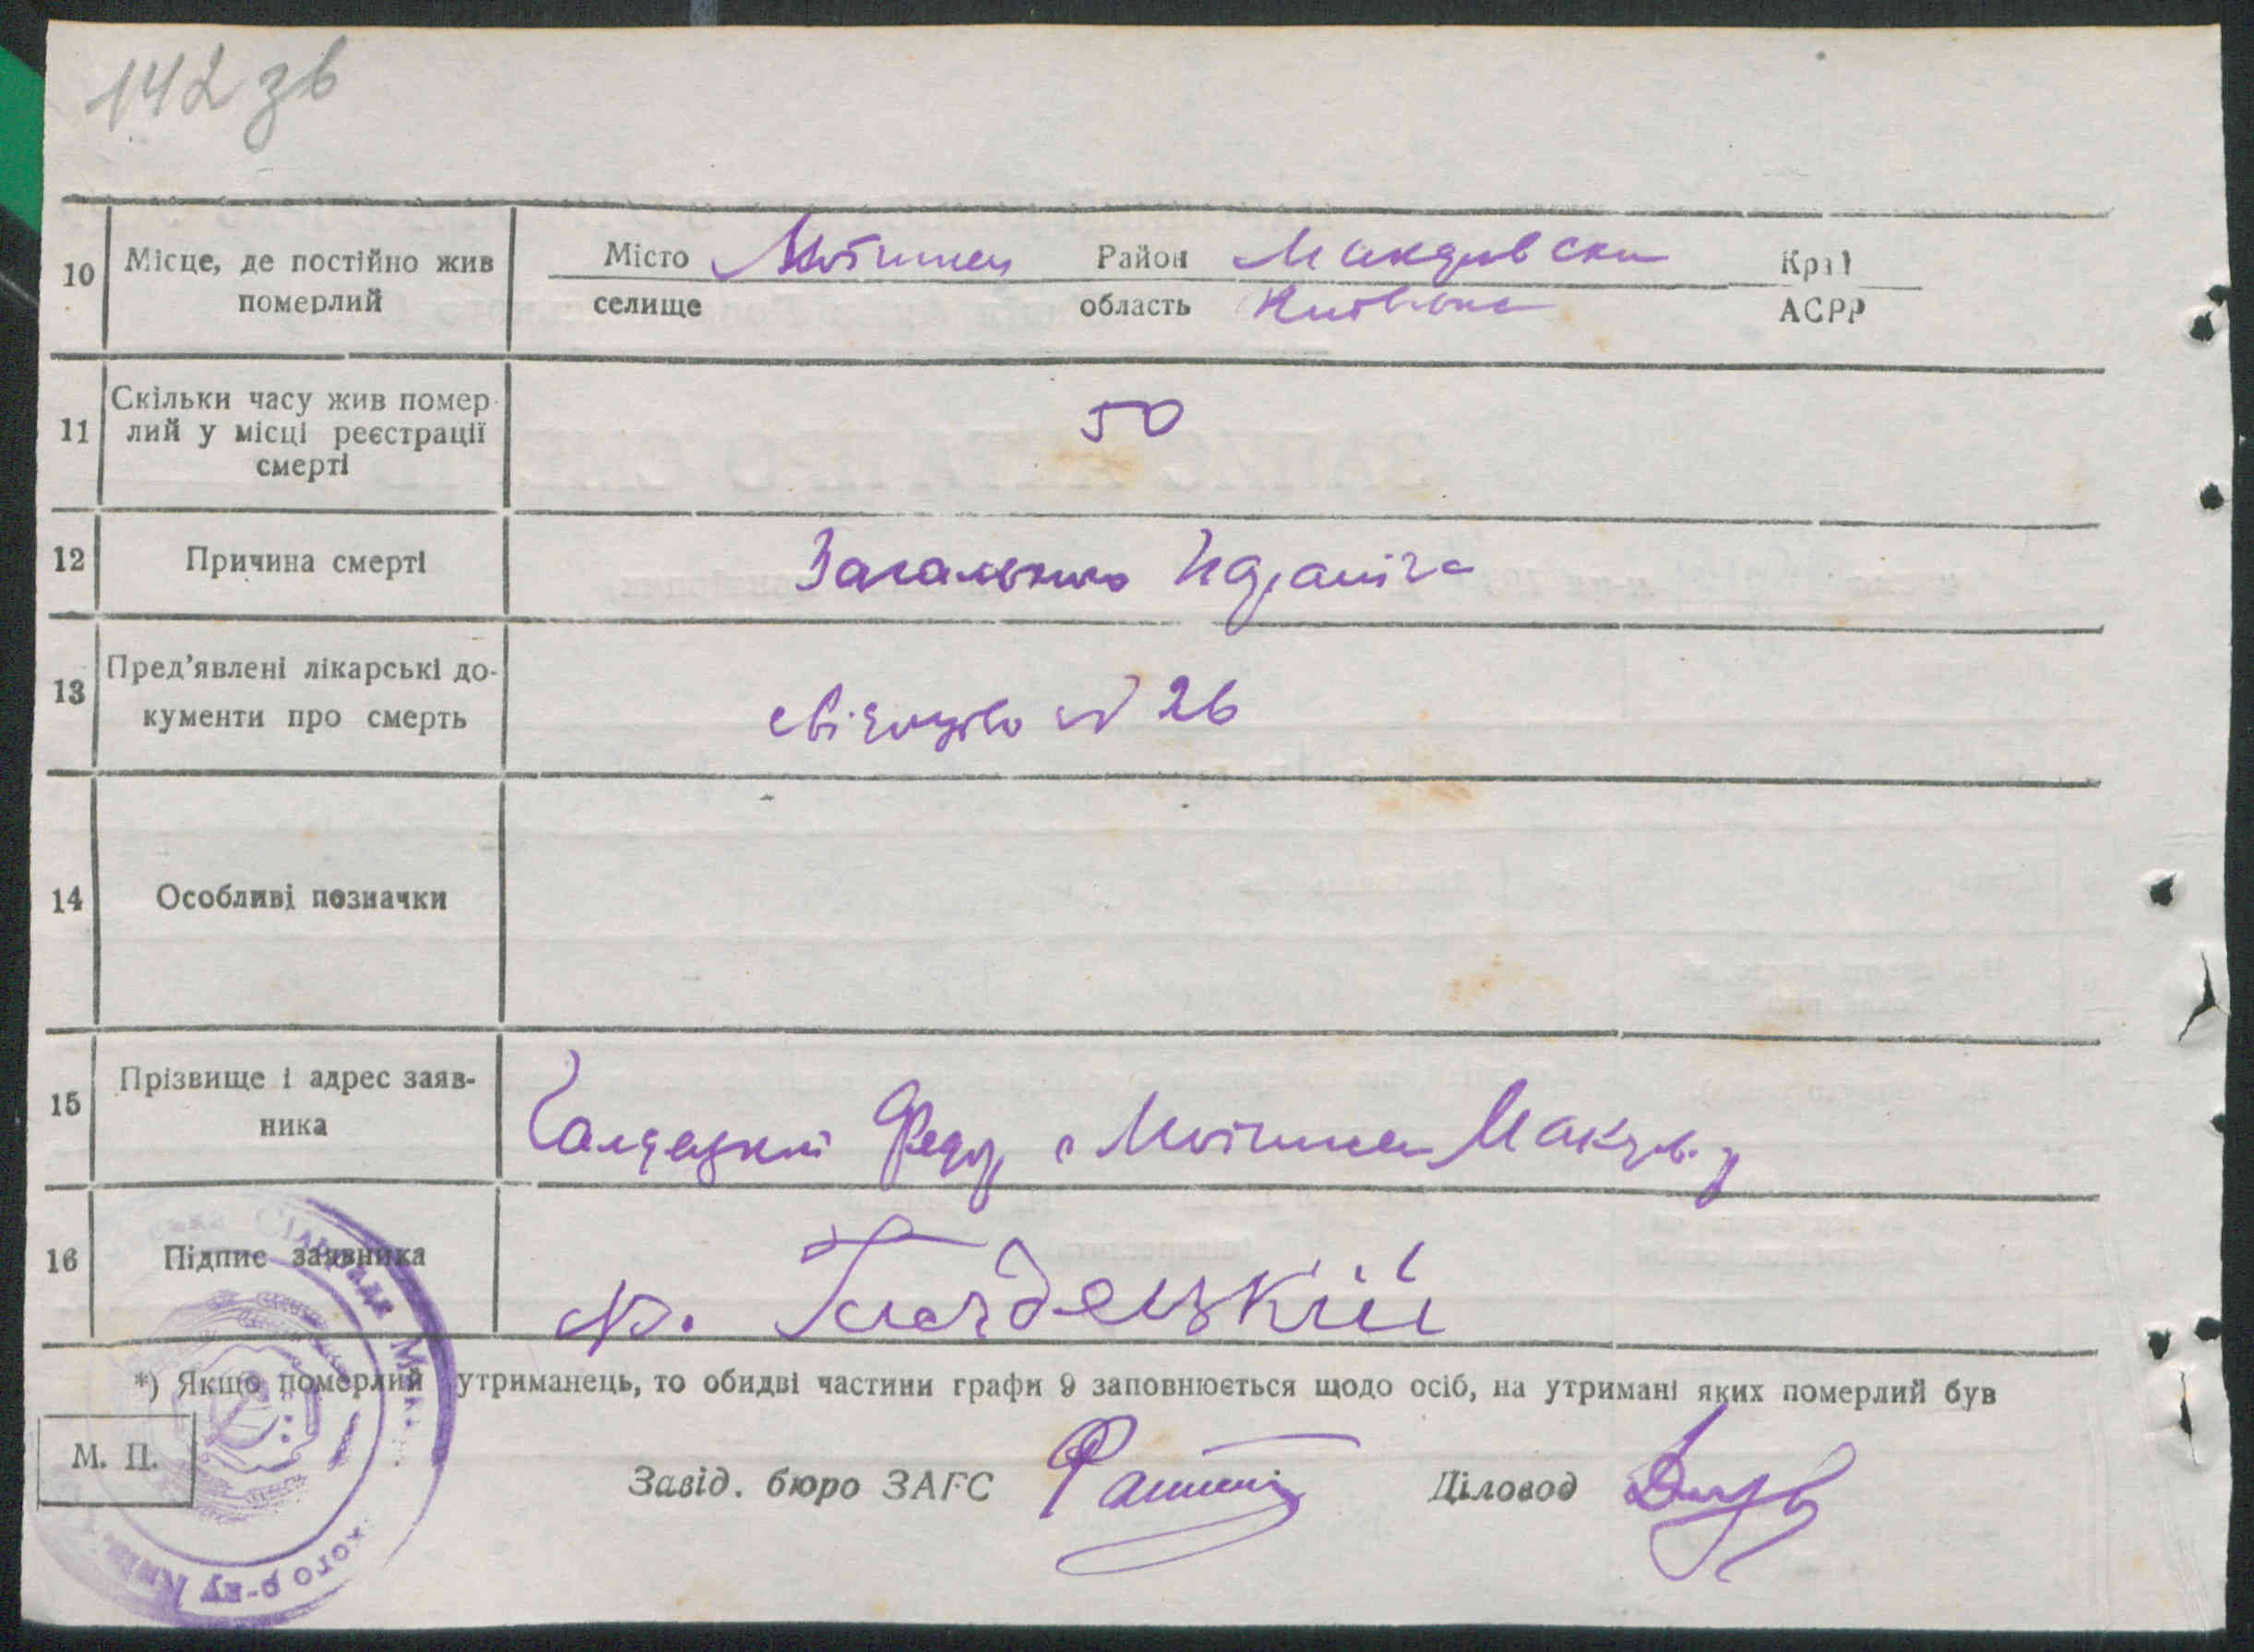 142 зв
10 Місце, де постійно жив померлий
Місто Мотижин Район Макарівськи Край
селище область Київська АСРР
11 Скільки часу жив помер-
лий у місці реєстрації
смерті
50
12 Причина смерті Загальна
13 Пред’явлені лікарські до-
кументи про смерть
свідоцтво № 26
14 Особливі позначки
15 Прізвище і адрес заяв-
ника
Федор с Мотижин Макарів. р
16 Підпис заявника
*) Якщо померлий утриманець, то обидві частини графи 9 заповнюється щодо осіб, на утримані яких померлий був
М. П.
Завід. бюро ЗАГС Діловод